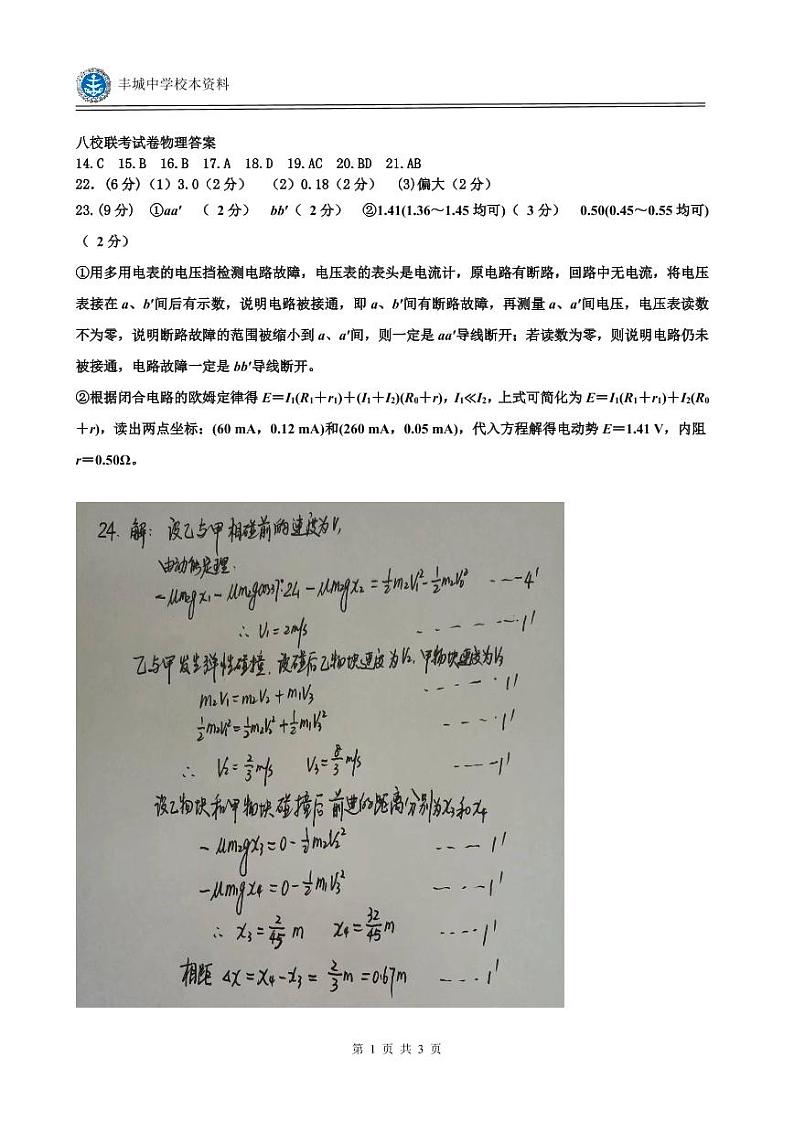 丰城中学校本资料
八校联考试卷物理答案
14.C 15.B 16.B 17.A 18.D 19.AC 20.BD 21.AB
22．(6分)（1）3.0（2分） （2）0.18（2分） （3)偏大（2分）
23.(9分) ①aa′ （ 2分） bb′（ 2分） ②1.41(1.36～1.45 均可)（ 3分） 0.50(0.45～0.55 均可)
（ 2分）
①用多用电表的电压挡检测电路故障，电压表的表头是电流计，原电路有断路，回路中无电流，将电压
表接在 a、b′间后有示数，说明电路被接通，即 a、b′间有断路故障，再测量 a、a′间电压，电压表读数
不为零，说明断路故障的范围被缩小到 a、a′间，则一定是 aa′导线断开；若读数为零，则说明电路仍未
被接通，电路故障一定是 bb′导线断开。
②根据闭合电路的欧姆定律得 E＝I₁(R₁＋r₁)＋(I₁＋I₂)(R₀＋r)，I₁≪I₂，上式可简化为 E＝I₁(R₁＋r₁)＋I₂(R₀
＋r)，读出两点坐标：(60 mA，0.12 mA)和(260 mA，0.05 mA)，代入方程解得电动势 E＝1.41 V，内阻
r＝0.50Ω。
24. 解：设乙与甲相碰前的速度为V₁
由动能定理：
-μm₂gx₁-μm₂gcos37°·2L-μm₂gx₂=½m₂V₁²-½m₂V₀² ----4'
∴ V₁=2m/s ------1'
乙与甲发生弹性碰撞，设碰后乙物块速度为V₂，甲物块速度为V₃
m₂V₁=m₂V₂+m₁V₃ ----1'
½m₂V₁²=½m₂V₂²+½m₁V₃² ----1'
∴ V₂=2/3 m/s V₃=8/3 m/s ----1'
设乙物块和甲物块碰撞后前进的距离分别为x₃和x₄
-μm₂gx₃=0-½m₂V₂² ----1'
-μm₁gx₄=0-½m₁V₃² ----1'
∴ x₃=2/45 m x₄=32/45 m ----1'
相距 Δx=x₄-x₃=2/3 m=0.67m ----1'
第 1 页 共 3 页